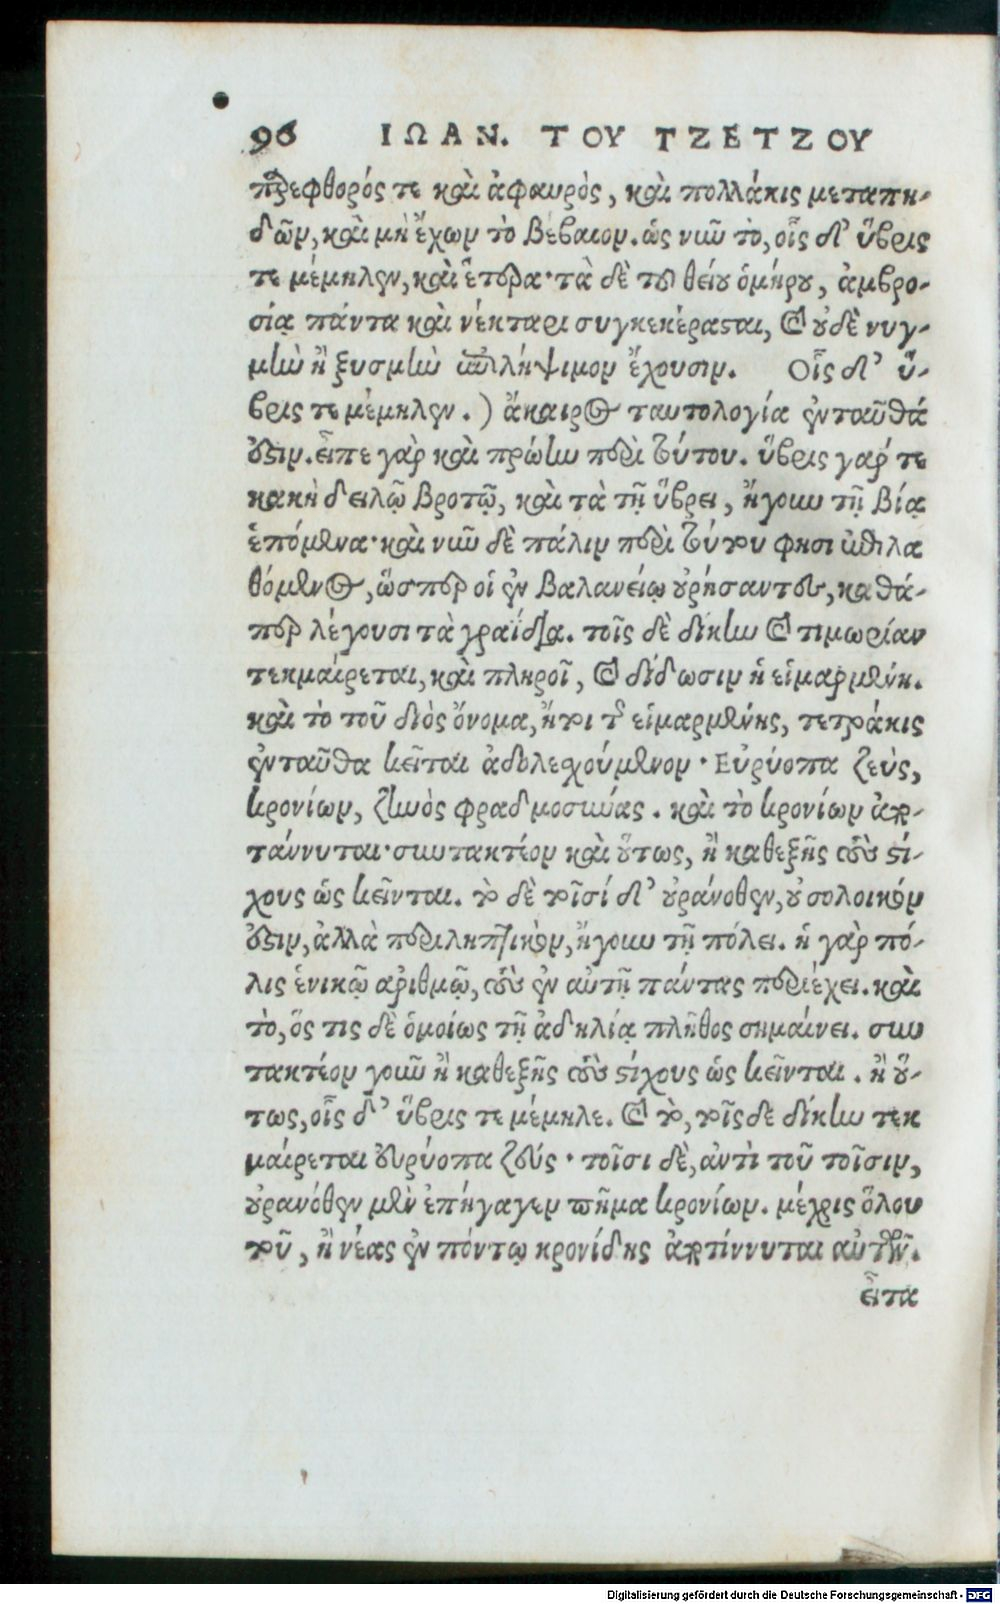 96 ΙΩΑΝ. ΤΟΥ ΤΖΕΤΖΟΥ
παρεφθορός τε καὶ ἀφαυρὸς, καὶ πολλάκις μεταπη-
δῶν, καὶ μὴ ἔχων τὸ βέβαιον. ὡς νῦν τὸ, οἷς δ' ὕβρις
τε μέμηλεν, καὶ ἕτερα· τὰ δὲ τοῦ θείου ὁμήρου, ἀμβρο-
σίᾳ πάντα καὶ νέκταρι συγκεκέρασται, καὶ οὐδὲ νυγ-
μὴν ἢ ξυσμὴν ἐπιλήψιμον ἔχουσιν. Οἷς δ' ὕ-
βρις τε μέμηλεν.) ἄκαιρος ταυτολογία ἐνταῦθά
ἐστιν. εἶπε γὰρ καὶ πρώην περὶ τούτου. ὕβρις γάρ τε
κακὴ δειλῷ βροτῷ, καὶ τὰ τῇ ὕβρει, ἤγουν τῇ βίᾳ
ἑπόμενα· καὶ νῦν δὲ πάλιν περὶ τούτου φησι ἐπιλα
θόμενος, ὥσπερ οἱ ἐν βαλανείῳ οὐρήσαντες, καθά-
περ λέγουσι τὰ γραΐδια. τοῖς δὲ δίκην καὶ τιμωρίαν
τεκμαίρεται, καὶ πληροῖ, καὶ δίδωσιν ἡ εἱμαρμένη.
καὶ τὸ τοῦ διὸς ὄνομα, ἤτοι τῆς εἱμαρμένης, τετράκις
ἐνταῦθα κεῖται ἀδολεσχούμενον· Εὐρύοπα ζεὺς,
κρονίων, ζηνὸς φραδμοσύνας. καὶ τὸ κρονίων ἀπο-
τάννυται· συντακτέον καὶ οὕτως, ἢ καθεξῆς τοὺς στί-
χους ὡς κεῖνται. τὸ δὲ τοῖσί δ' οὐράνοθεν, οὐ σόλοικόν
ἐστιν, ἀλλὰ περιληπτικὸν, ἤγουν τῇ πόλει. ἡ γὰρ πό-
λις ἑνικῷ ἀριθμῷ, τοὺς ἐν αὐτῇ πάντας περιέχει. καὶ
τὸ, ὅς τις δὲ ὁμοίως τῇ ἀδηλίᾳ πλῆθος σημαίνει. συν
τακτέον γοῦν ἢ καθεξῆς τοὺς στίχους ὡς κεῖνται. ἢ οὕ-
τως, οἷς δ' ὕβρις τε μέμηλε. καὶ τὸ, τοῖς δε δίκην τεκ
μαίρεται εὐρύοπα ζεύς· τοῖσι δὲ, ἀντὶ τοῦ τοῖσιν,
οὐρανόθεν μὲν ἐπήγαγεν πῆμα κρονίων. μέχρις ὅλου
τοῦ, ἢ νέας ἐν πόντῳ κρονίδης ἀποτίννυται αὐτῶν.
εἶτα
Digitalisierung gefördert durch die Deutsche Forschungsgemeinschaft - DFG